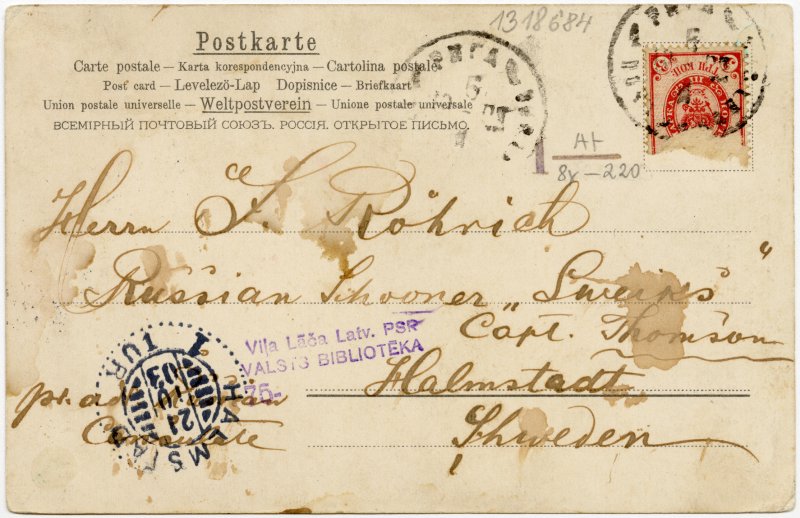 1318684
Postkarte
Carte postale — Karta korespondencyjna — Cartolina postale
Post card — Levelezö-Lap Dopisnice — Briefkaart
Union postale universelle — Weltpostverein — Unione postale universale
ВСЕМІРНЫЙ ПОЧТОВЫЙ СОЮЗЪ. РОССІЯ. ОТКРЫТОЕ ПИСЬМО.
РИГА
5
РИГА
5
ТРИ КОП.
3
3
At
8x—220
Herrn F. Röhrich
Russian Schooner „Sweips“
Capt. Thomson
Viļa Lāča Latv. PSR
VALSTS BIBLIOTĒKA
75.-
Halmstadt
pr. ad.
Consulate
Schweden
HALMSTAD
1 TUR
21
10
03